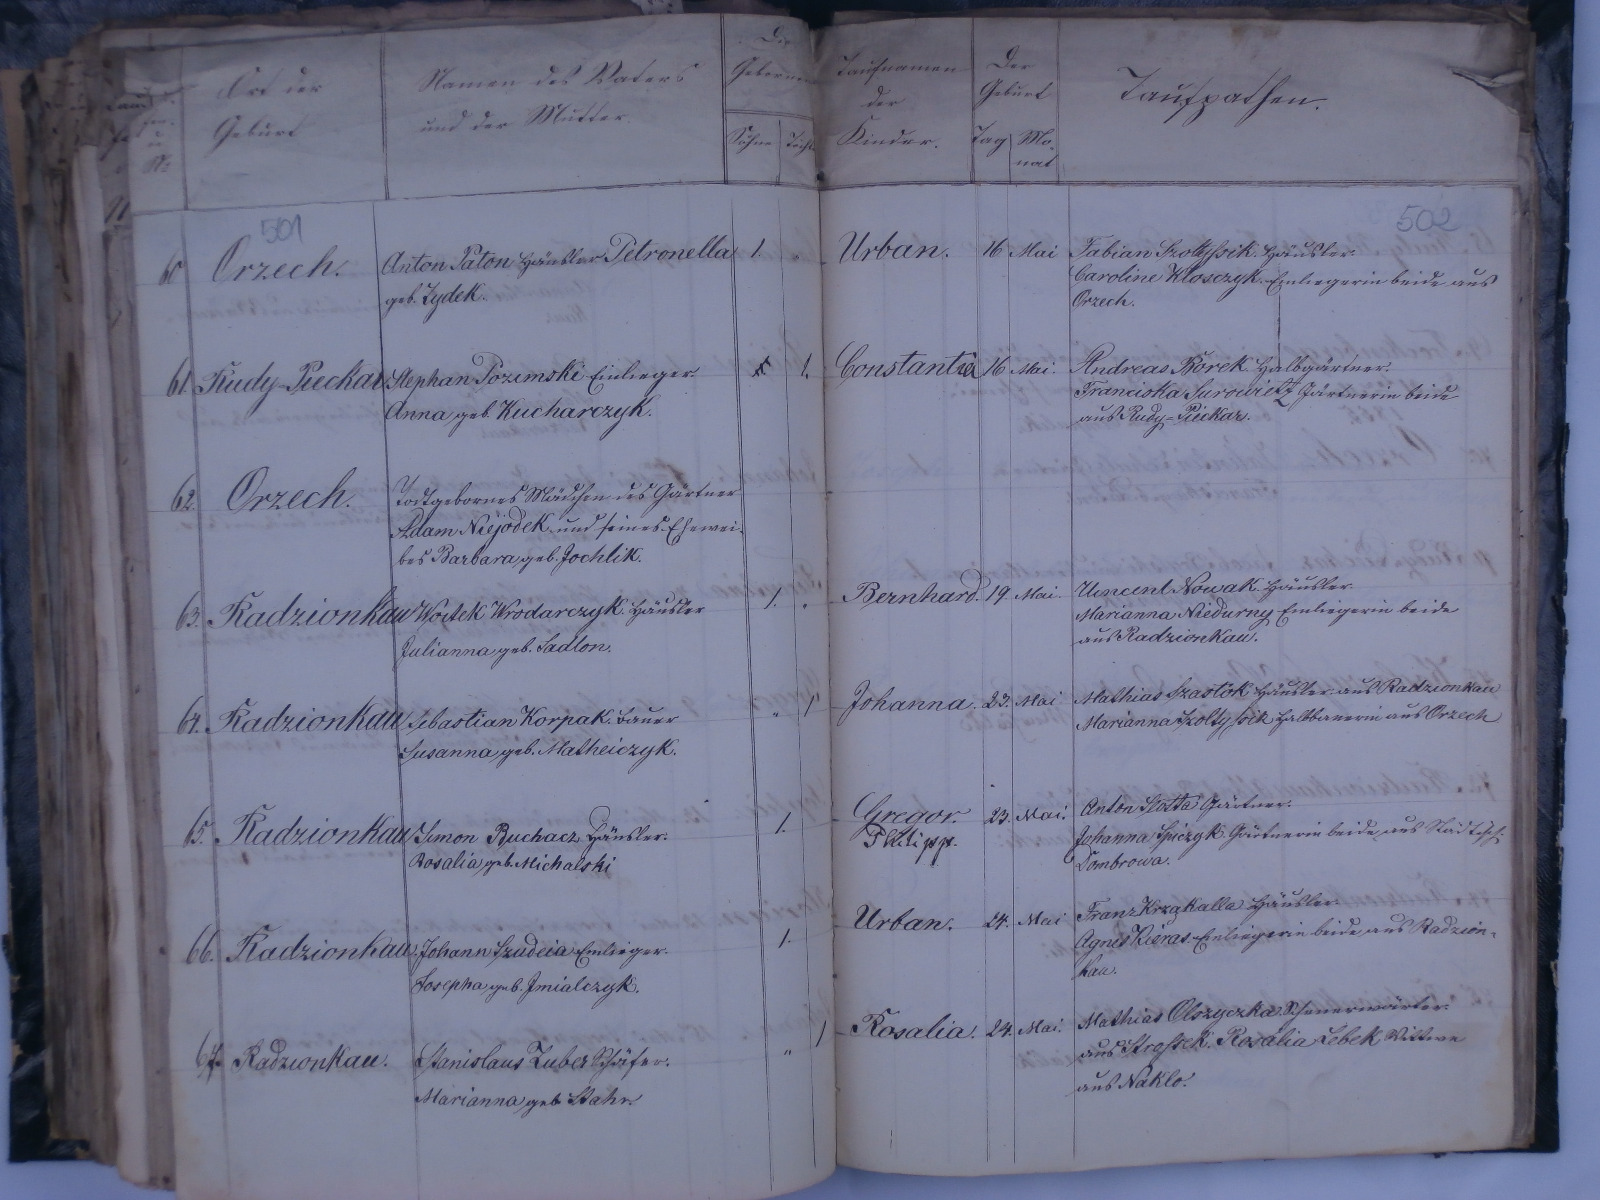 Ort der
Geburt
Namen des Vaters
und der Mutter.
Die
Gebornen
Söhne
Töcht
Taufnamen
der
Kinder.
Der
Geburt
Tag
Mo-
nat
Taufpathen.
501
502
60 Orzech. Anton Paton Häusler Petronella 1. „ Urban. 16 Mai Fabian Szoltyssik Häusler.
geb. Zydek. Caroline Klosczyk Einliegerin beide aus
Orzech.
61. Rudy-Pieckar Stephan Pozimski Einlieger 1. Constantia 16 Mai. Andreas Borek Halbgärtner.
Anna geb. Kucharczyk. Franciska Surowietz Gärtnerin beide
aus Rudy-Pieckar.
62. Orzech. Todtgebornes Mädchen des Gärtner
Adam Niejodek und seines Ehewei-
bes Barbara geb. Jochlik.
63. Radzionkau Woitek Wrodarczyk Häusler 1. „ Bernhard. 19 Mai. Vincent Nowak Häusler
Julianna geb. Sadlon. Marianna Niedurny Einliegerin beide
aus Radzionkau.
64. Radzionkau Sebastian Korpak Bauer „ 1 Johanna. 23. Mai Mathias Szastok Häusler aus Radzionkau
Susanna geb. Matheiczyk. Marianna Szoltyssik Halbbauerin aus Orzech
65. Radzionkau Simon Buchacz Häusler. 1. Gregor 23. Mai. Anton Slotta Gärtner.
Rosalia geb. Michalski Philipp. Johanna Spiczyk Gärtnerin beide aus Städtisch
Dombrowa.
66. Radzionkau. Johann Szudeia Einlieger. 1. Urban. 24. Mai Franz Krzykalla Häusler
Josepha geb. Imialczyk. Agnes Kieras Einliegerin beide aus Radzion-
kau.
67. Radzionkau. Stanislaus Zuber Schäfer. „ 1 Rosalia. 24. Mai. Mathias Olszyczka Scheuerwärter
Marianna geb. Stahr. aus Strossek. Rosalia Lebek Wittwe
aus Naklo.